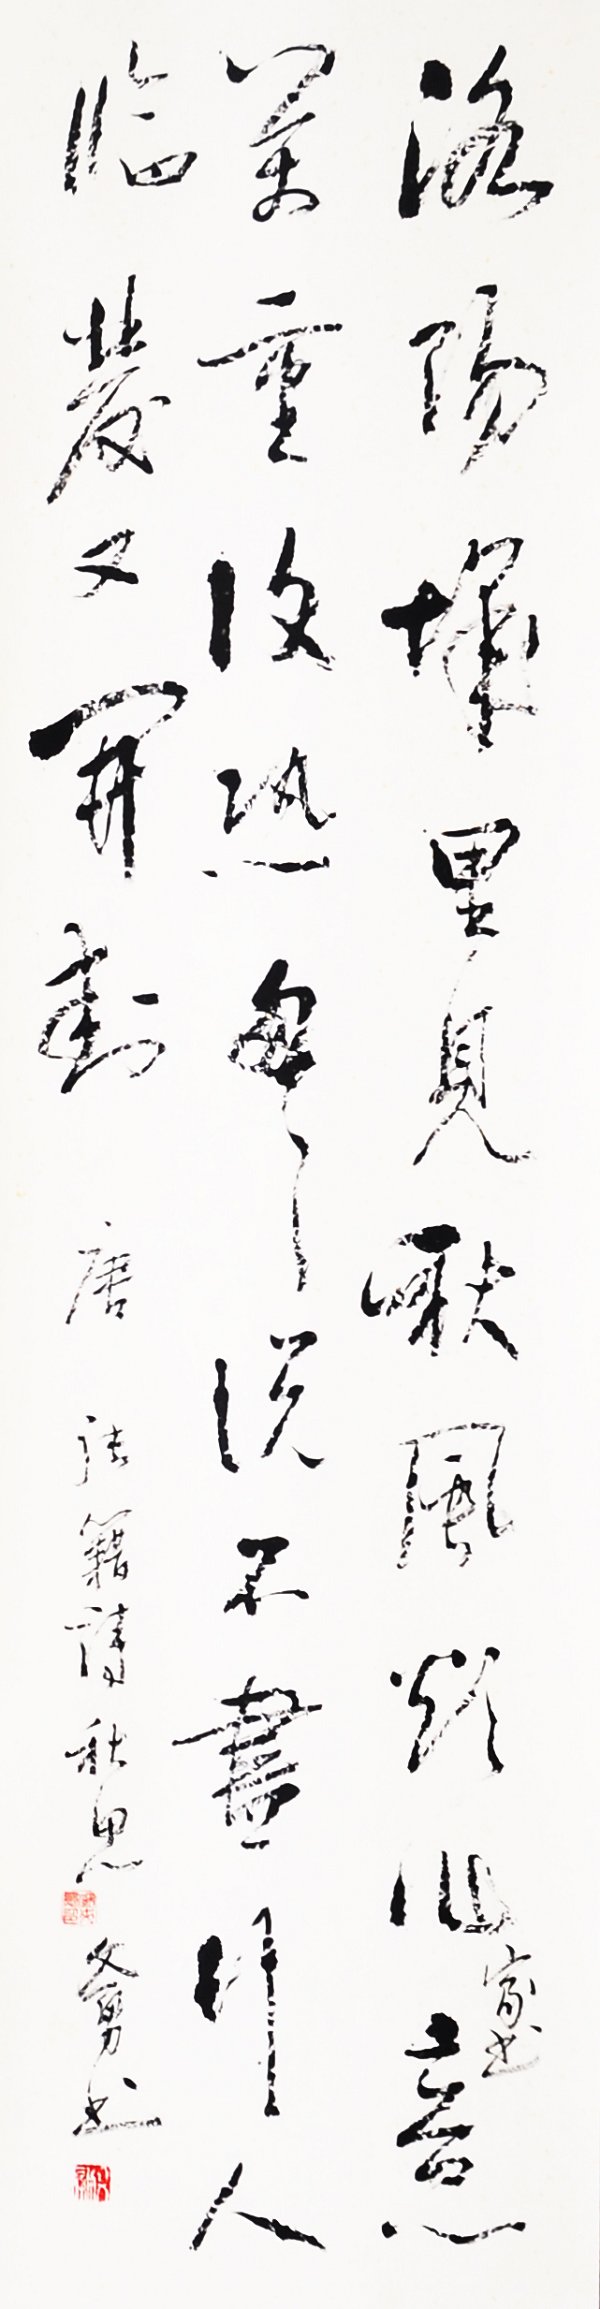 洛陽城里見秋風欲作家書意
萬重復恐匆匆說不盡行人
臨發又開封 唐 張籍詩秋思 文勇書